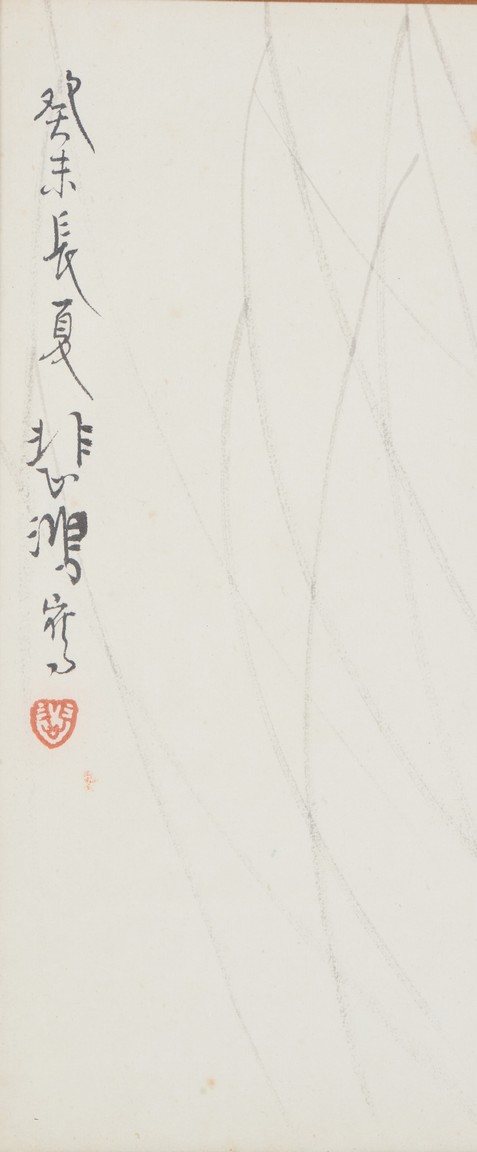 癸未長夏悲鴻寫
悲